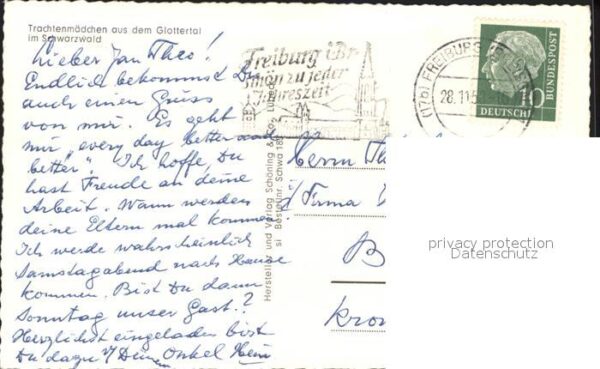 Trachtenmädchen aus dem Glottertal
im Schwarzwald
Lieber Jan Theo!
Endlich bekommst Du
auch einen Gruss
von mir. Es geht
mir "every day better and
better". Ich hoffe Du
hast Freude an deine
Arbeit. Wann werden
deine Eltern mal kommen?
Ich werde wahrscheinlich
Samstagabend nach Hause
kommen. Bist Du dann
Sonntag unser Gast?
Herzlichst eingeladen bist
Du dazu v/ Deinem Onkel Hein
Freiburg i Br
schön zu jeder
Jahreszeit
(17b) FREIBURG
28.11.5
10
DEUTSCHE
BUNDESPOST
Hersteller und Verlag Schöning & Co., Lübeck
si Bestellnr. Schwa 18
Herrn Th
i/ Firma
B
Kron
privacy protection
Datenschutz